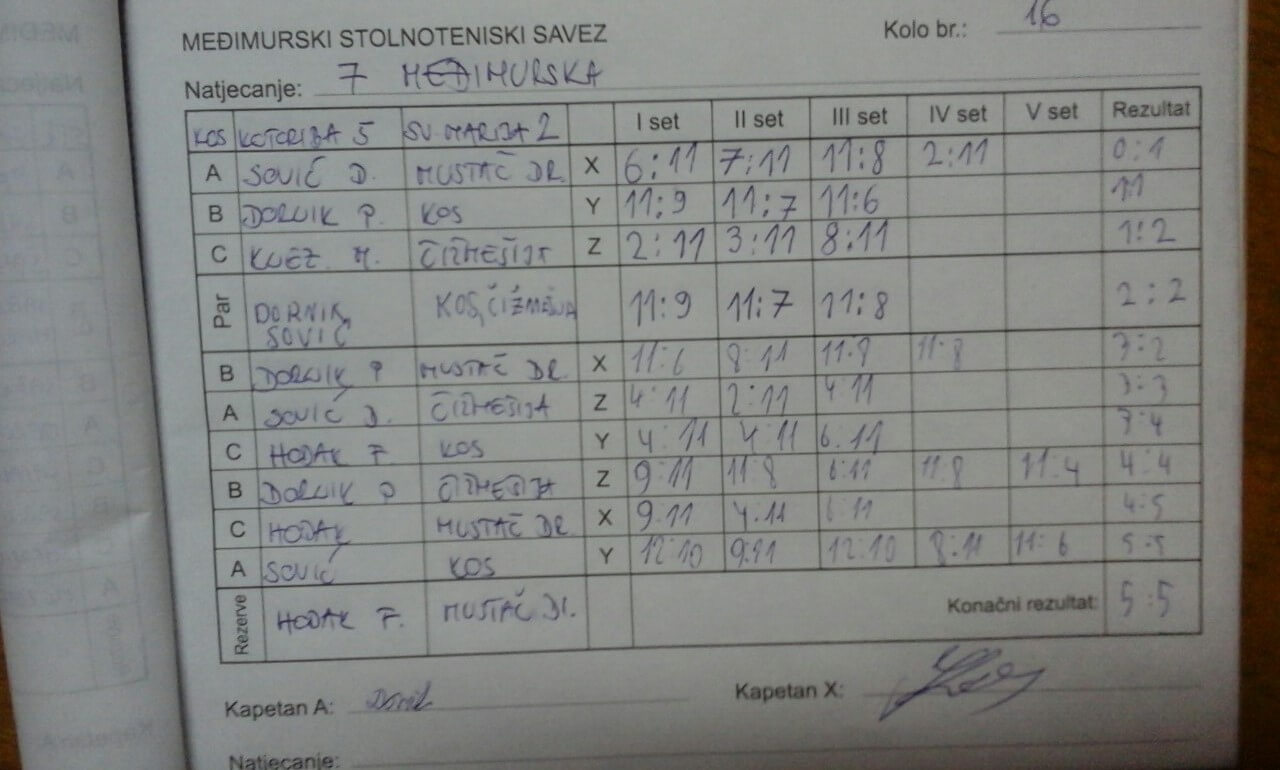 MEĐIMURSKI STOLNOTENISKI SAVEZ
Kolo br.: 16
Natjecanje: 7 MEĐIMURSKA
KOS KOTORIBA 5 SV. MARIJA 2 I set II set III set IV set V set Rezultat
A SOVIĆ D. MUSTAČ DR. X 6:11 7:11 11:8 2:11 0:1
B DORNIK P. KOS Y 11:9 11:7 11:6 1:1
C M. ČIŽMEŠIJA Z 2:11 3:11 8:11 1:2
Par DORNIK, KOS, ČIŽMEŠIJA 11:9 11:7 11:8 2:2
SOVIĆ
B DORNIK P MUSTAČ DR. X 11:6 8:11 11:9 11:8 3:2
A SOVIĆ D. ČIŽMEŠIJA Z 4:11 2:11 4:11 3:3
C HODAK F. KOS Y 4:11 4:11 6:11 3:4
B DORNIK P ČIŽMEŠIJA Z 9:11 11:8 6:11 11:8 11:4 4:4
C HODAK MUSTAČ DR X 9:11 4:11 6:11 4:5
A SOVIĆ KOS Y 12:10 9:11 12:10 8:11 11:6 5:5
Rezerve HODAK F. MUSTAČ Konačni rezultat: 5:5
Kapetan A: Kapetan X:
Natjecanje: